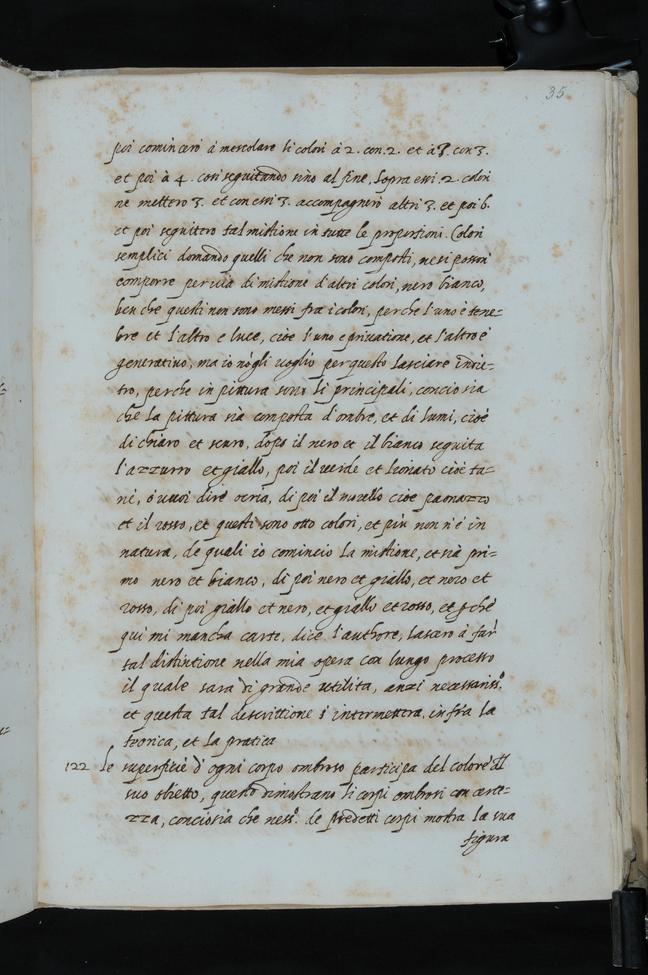 35
poi cominciero à mescolare li colori à 2. con. 2. et à 3. con 3.
et poi à 4. cosi seguitando sino al fine, sopra essi. 2. colori
ne mettero 3. et con essi 3. accompagnerò altri 3. et poi 6.
et poi seguitero tal mistione in tutte le proportioni. Colori
semplici domando quelli che non sono composti, ne si posson
comporre per via di mistione d'altri colori, nero bianco,
ben che questi non sono messi fra i colori, perche l'uno è tene=
bre et l'altro e luce, cioè l'uno e privatione, et l'altro è
generativo, ma io nõ gli voglio per questo lasciare indie=
tro, perche in pittura sono li principali, concio sia
che la pittura sia composta d'ombre, et di lumi, cioè
di chiaro et scuro, dopo il nero et il bianco seguita
l'azzurro et giallo, poi il verde et leonato cioè ta=
nè, o vuoi dire ocria, di poi il morello cioe paonazzo
et il rosso, et questi sono otto colori, et più non n'è in
natura, de quali io comincio la mistione, et sià pri=
mo nero et bianco, di poi nero et giallo, et nero et
rosso, di poi giallo et nero, et giallo et rosso, et p che
qui mi mancha carte, dice l'authore, lascero à far
tal distintione nella mia opera con lungo processo
il quale sara di grande utilita, anzi necessariss.º
et questa tal descrittione s intermettera, infra la
teorica, et la pratica
122 Le superfitie d'ogni corpo ombroso participa del colore del
suo obietto, questo dimostrano li corpi ombrosi con certe=
zza, conciosia che ness.º de predetti corpi mostra la sua
figura